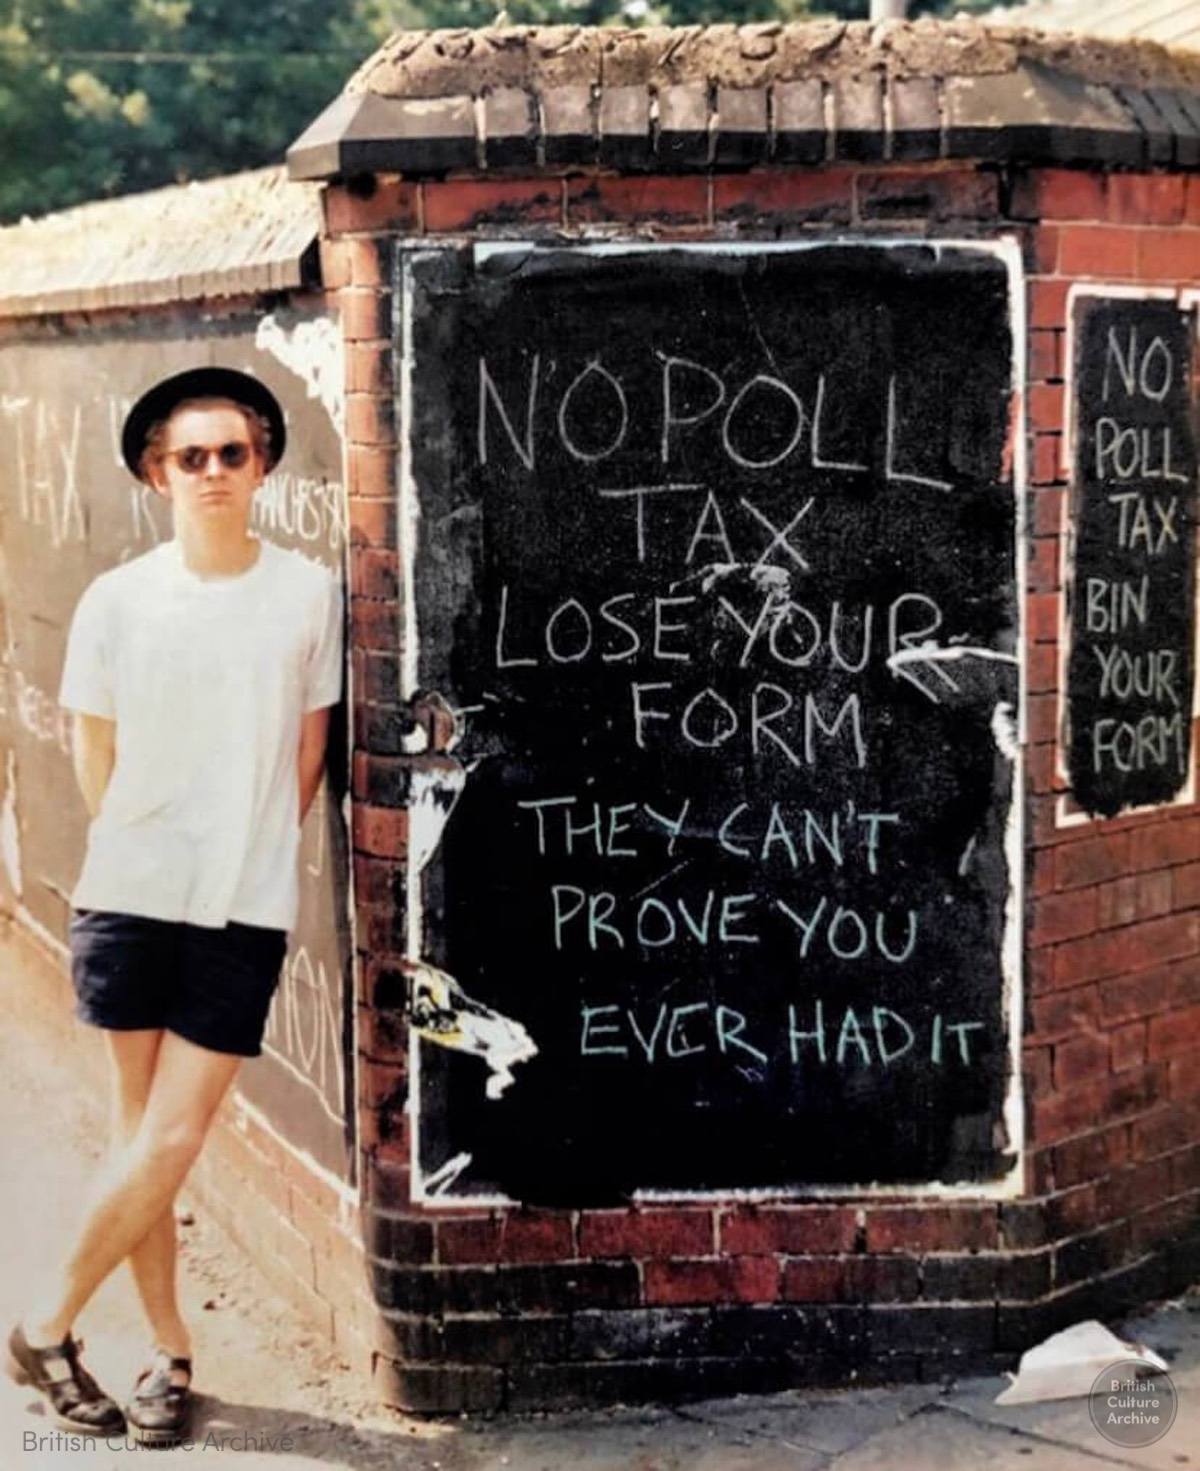 NO POLL
TAX
LOSE YOUR
FORM
THEY CAN'T
PROVE YOU
EVER HAD IT
NO
POLL
TAX
BIN
YOUR
FORM
TAX
MANCHESTER
British Culture Archive
British
Culture
Archive